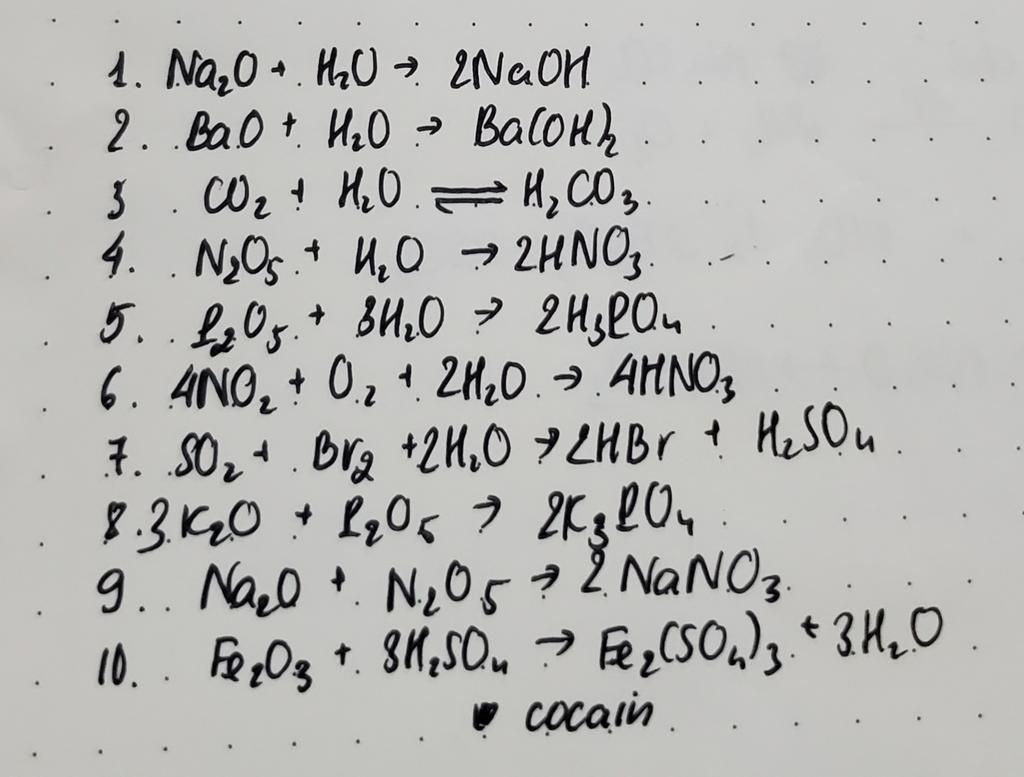 1. Na₂O + H₂O → 2NaOH
2. BaO + H₂O → Ba(OH)₂
3 CO₂ + H₂O ⇌ H₂CO₃
4. N₂O₅ + H₂O → 2HNO₃
5. P₂O₅ + 3H₂O → 2H₃PO₄
6. 4NO₂ + O₂ + 2H₂O → 4HNO₃
7. SO₂ + Br₂ + 2H₂O → 2HBr + H₂SO₄
8. 3K₂O + P₂O₅ → 2K₃PO₄
9. Na₂O + N₂O₅ → 2NaNO₃
10. Fe₂O₃ + 3H₂SO₄ → Fe₂(SO₄)₃ + 3H₂O
cocain